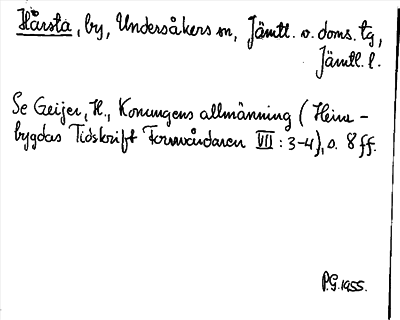 Hårsta, by, Undersåkers sn, Jämtl. v. doms. tg,
Jämtl. l.
Se Geijer, H., Konungens allmänning (Heim-
bygdas Tidskrift Fornvårdaren VII : 3-4), s. 8 ff.
P.G. 1955.